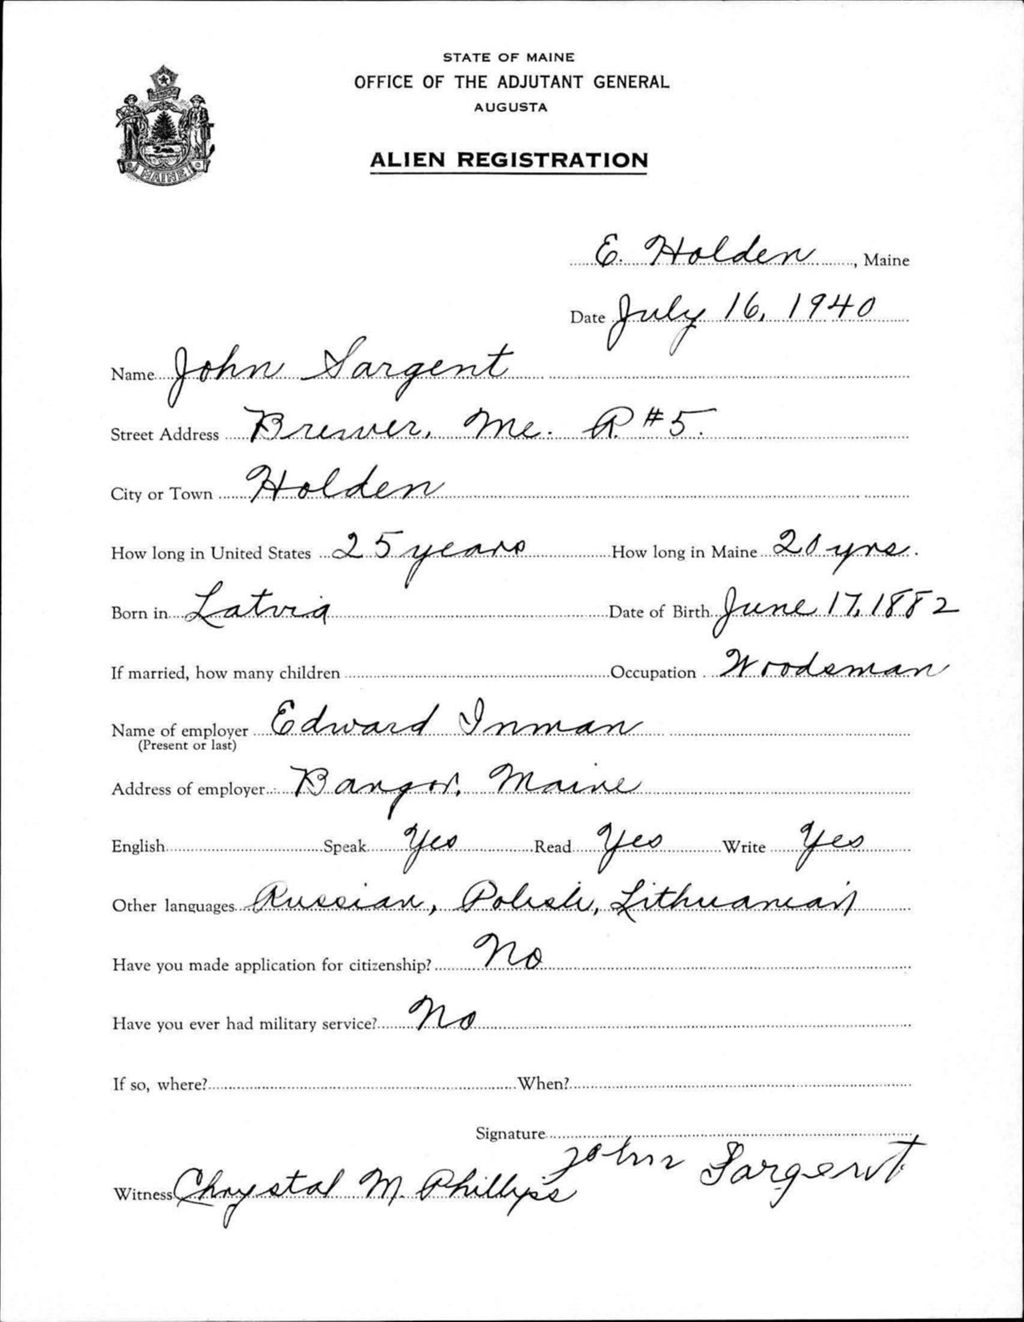 STATE OF MAINE
OFFICE OF THE ADJUTANT GENERAL
AUGUSTA
ALIEN REGISTRATION
MAINE
E. Holden, Maine
Date July 16, 1940
Name John Sargent
Street Address Brewer, Me. R #5.
City or Town Holden
How long in United States 25 years How long in Maine 20 yrs.
Born in Latvia Date of Birth June 17, 1882
If married, how many children Occupation Woodsman
Name of employer Edward Inman
(Present or last)
Address of employer Bangor, Maine
English Speak Yes Read Yes Write Yes
Other languages Russian, Polish, Lithuanian
Have you made application for citizenship? No
Have you ever had military service? No
If so, where? When?
Signature John Sargent
Witness Chrystal M. Phillips